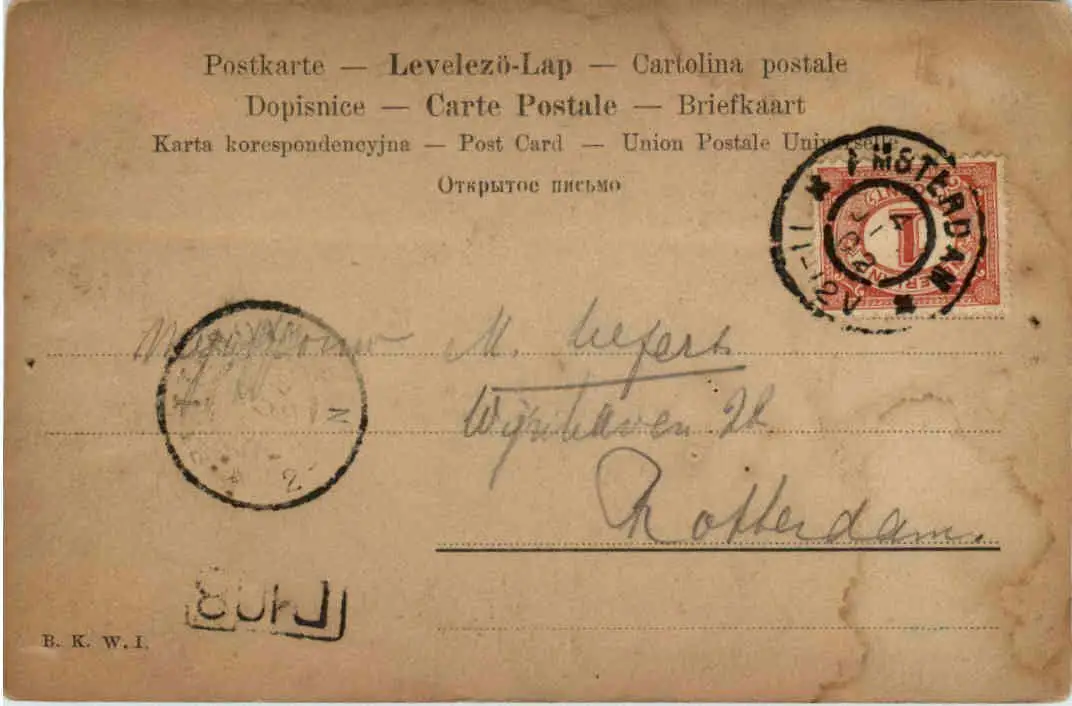 Postkarte — Levelező-Lap — Cartolina postale
Dopisnice — Carte Postale — Briefkaart
Karta korespondencyjna — Post Card — Union Postale Universelle
Открытое письмо
AMSTERDAM
1
M.
Wijnhaven
Rotterdam.
N
2
B. K. W. I.